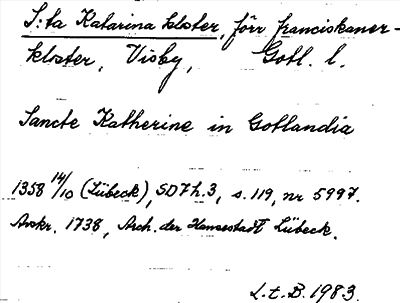 S:ta Katarina kloster, förr franciskaner-
kloster, Visby, Gotl. l.
Sancte Katherine in Gotlandia
1358 14/10 (Lübeck), SD7h.3, s. 119, nr 5997.
Avskr. 1738, Arch. der Hansestadt Lübeck.
L.t.B. 1983.